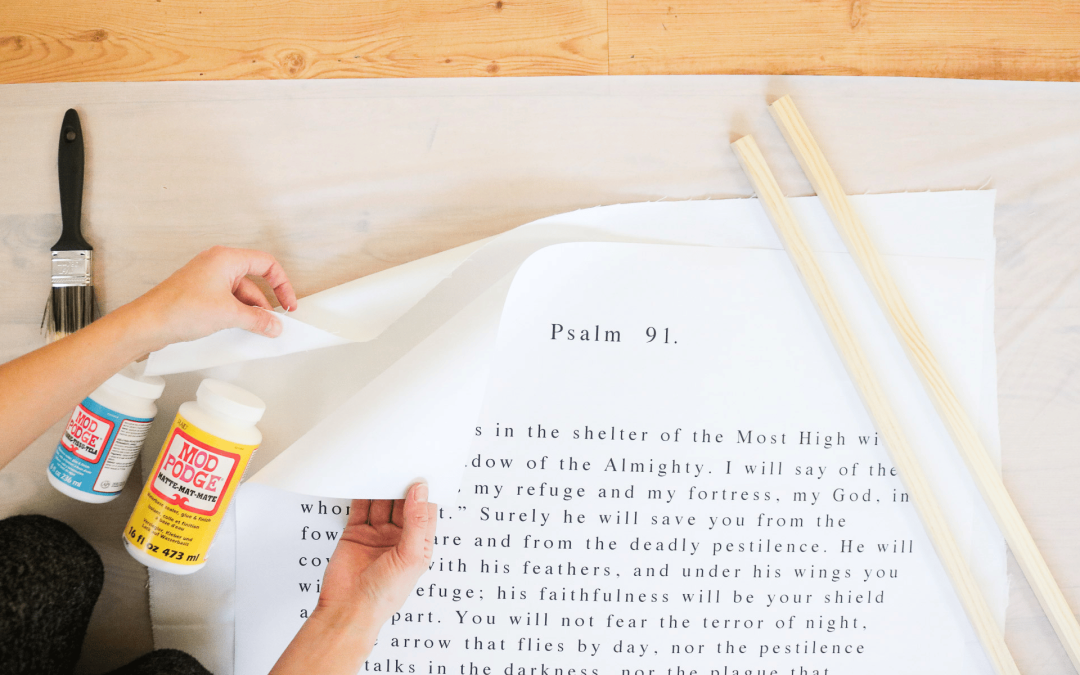 Psalm 91.
s in the shelter of the Most High wi
dow of the Almighty. I will say of the
, my refuge and my fortress, my God, in
whom t.” Surely he will save you from the
fow are and from the deadly pestilence. He will
co with his feathers, and under his wings you
wi efuge; his faithfulness will be your shield
a part. You will not fear the terror of night,
e arrow that flies by day, nor the pestilence
talks in the darkness, nor the plague that
MOD
PODGE
8 fl oz 236 ml
MOD
PODGE
MATTE-MAT-MATE
Waterbase sealer, glue & finish
16 fl oz 473 ml